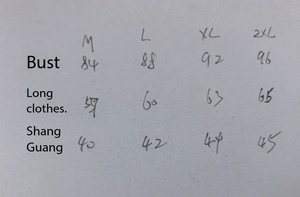 M L XL 2XL
Bust 84 88 92 96
Long clothes. 60 63 65
Shang Guang 40 42 44 45